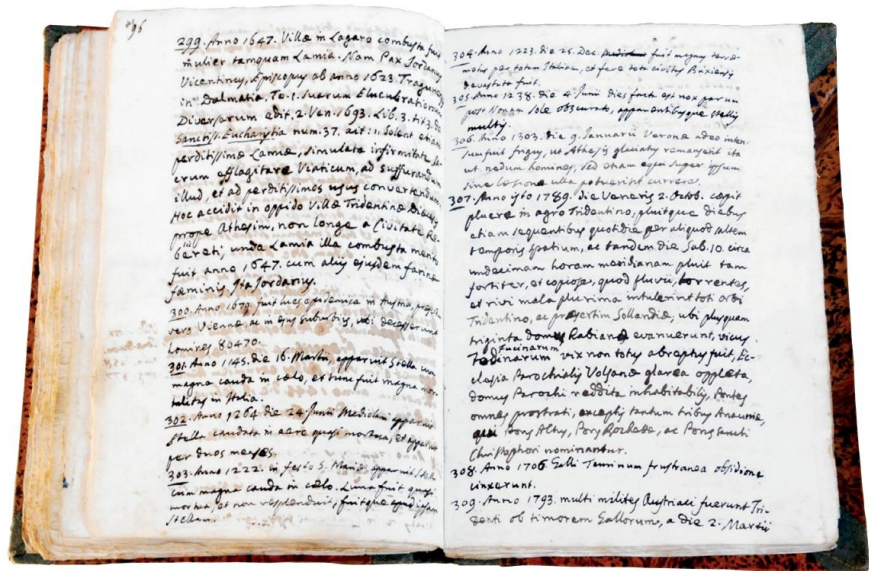 96
299. Anno 1647. Villæ in Lagaro combusta fuit
mulier tamquam Lamia. Nam Pax Jordanus
Vicentinus, Episcopus ab anno 1623.
in Dalmatia, To. 1. suarum Elucubrationum
Diversarum edit. 2. Ven. 1693. Lib. 3. tit. 3. de
Sanctiss. Eucharistia num. 37. ait: Solent etiam
perditissimæ Lamiæ, simulate infirmitate, Sa-
crum efflagitare Viaticum, ad suffurandum
illud, et ad perditissimos usus convertendum
Hoc accidit in oppido Villæ Tridentinæ
prope Athesim, non longe a Civitate Ro-
bereti; unde Lamia illa combusta merito
fuit anno 1647. cum alijs ejusdem farinæ
fæminis. Ita Jordanus.
300. Anno 1679. fuit lues epidemica in Austria, præser-
vero Viennæ, ac in ejus suburbijs, ubi decesserunt
homines 80470.
301. Anno 1145. die 16. Martii, apparuit Stella cum
magna cauda in cælo, et tunc fuit magna mor-
talitas in Italia.
302. Anno 1264. die 24. Junii Mediolani apparuit
Stella caudata in aere quasi mortua, et apparuit
per duos menses.
303. Anno 1222. in festo S. Mariæ apparuit Stella
cum magna cauda in cælo. Luna fuit quasi
mortua, et non resplenduit, fuitque
Stellam.
304. Anno 1223. die 25. Dec. fuit magnus terræ-
motus per totam Italiam, et fere tota civitas Brixiensis
devastata fuit.
305. Anno 1238. die 4. Junii dies facta est nox parum
post Nonam Sole obscurato, apparentibusque stellis
multis.
306. Anno 1303. die 9. Januarii Veronæ adeo inten-
sum fuit frigus, ut Athesis glaciatus remanserit ita
ut nedum homines, sed etiam equi super ipsum
sine læsione ulla potuerint currere.
307. Anno isto 1789. die Veneris 2. Octob. cæpit
pluere in agro Tridentino, pluitque diebus
etiam sequentibus quotidie per aliquod saltem
temporis spatium, ac tandem die Sab. 10. circa
undecimam horam meridianam pluit tam
fortiter, et copiose, quod fluvii, torrentes,
et rivi mala plurima intulerint toti orbi
Tridentino, ac præsertim Sollandiæ, ubi plusquam
triginta domus Rabiandæ evanuerunt, vicus
Fucinarum
vix non totus abreptus fuit, Ec-
clesia Parochialis Volsanæ glarea oppleta,
domus Parochi reddita inhabitabilis, Pontes
omnes prostrati, exceptis tantum tribus Anauniæ,
qui Pons Altus, Pons Rochetæ, ac Pons Sancti
Christophori nominantur.
308. Anno 1706. Galli Taurinum frustranea obsidione
cinxerunt.
309. Anno 1793. multi milites Austriaci fuerunt Tri-
denti ob timorem Gallorum, a die 2. Martii